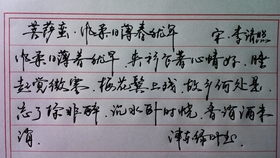 菩萨蛮·风柔日薄春犹早 宋·李清照
风柔日薄春犹早 夹衫乍著心情好。睡
起觉微寒。梅花鬓上残。故乡何处是。
忘了除非醉。沉水卧时烧。香消酒未
消。